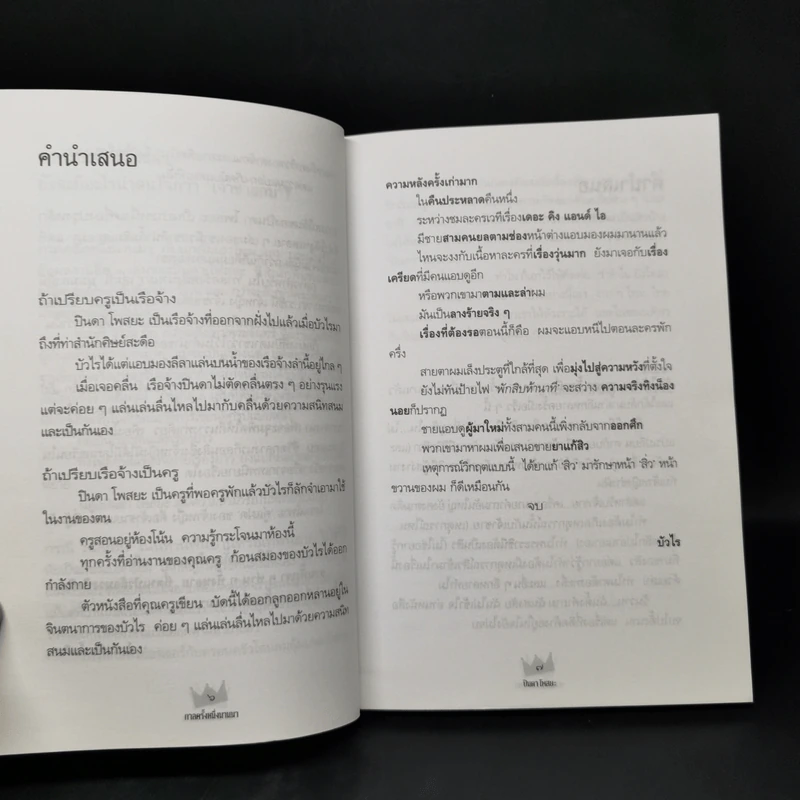 คำนำเสนอ
ถ้าเปรียบครูเป็นเรือจ้าง
ปินดา โพสยะ เป็นเรือจ้างที่ออกจากฝั่งไปแล้วเมื่อบัวไรมา
ถึงที่ท่าสำนักศิษย์สะดือ
บัวไรได้แต่แอบมองลีลาแล่นบนน้ำของเรือจ้างลำนี้อยู่ไกล ๆ
เมื่อเจอคลื่น เรือจ้างปินดาไม่ตัดคลื่นตรง ๆ อย่างรุนแรง
แต่จะค่อย ๆ แล่นเล่นลื่นไหลไปมากับคลื่นด้วยความสนิทสนม
และเป็นกันเอง
ถ้าเปรียบเรือจ้างเป็นครู
ปินดา โพสยะ เป็นครูที่พอครูพักแล้วบัวไรก็ลักจำเอามาใช้
ในงานของตน
ครูสอนอยู่ห้องโน้น ความรู้กระโจนมาห้องนี้
ทุกครั้งที่อ่านงานของคุณครู ก้อนสมองของบัวไรได้ออก
กำลังกาย
ตัวหนังสือที่คุณครูเขียน บัดนี้ได้ออกลูกออกหลานอยู่ใน
จินตนาการของบัวไร ค่อย ๆ แล่นเล่นลื่นไหลไปมาด้วยความสนิท
สนมและเป็นกันเอง
๖
กาลครั้งหนึ่งนานมา
ความหลังครั้งเก่ามาก
ในคืนประหลาดคืนหนึ่ง
ระหว่างชมละครเวทีเรื่องเดอะ คิง แอนด์ ไอ
มีชายสามคนยลตามช่องหน้าต่างแอบมองผมมานานแล้ว
ไหนจะงงกับเนื้อหาละครที่เรื่องวุ่นมาก ยังมาเจอกับเรื่อง
เครียดที่มีคนแอบดูอีก
หรือพวกเขามาตามและล่าผม
มันเป็นลางร้ายจริง ๆ
เรื่องที่ต้องรอตอนนี้ก็คือ ผมจะแอบหนีไปตอนละครพัก
ครึ่ง
สายตาผมเล็งประตูที่ใกล้ที่สุด เพื่อมุ่งไปสู่ความหวังที่ตั้งใจ
ยังไม่ทันป้ายไฟ 'พักสิบห้านาที' จะสว่าง ความจริงทิงน็อง
นอยก็ปรากฏ
ชายแอบดูผู้มาใหม่ทั้งสามคนนี้เพิ่งกลับจากออกศึก
พวกเขามาหาผมเพื่อเสนอขายยาแก้สิว
เหตุการณ์วิกฤตแบบนี้ ได้ยาแก้ 'สิว' มารักษาหน้า 'สิ่ว' หน้า
ขวานของผม ก็ดีเหมือนกัน
จบ
บัวไร
๗
ปินดา โพสยะ